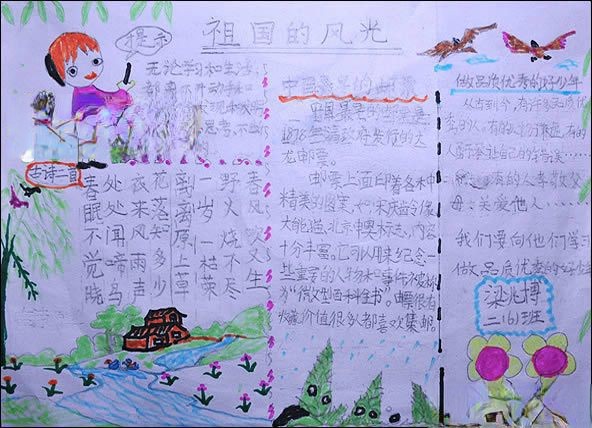 祖国的风光
提示
无论学习和生活,
都离不开动手和
发现和发明
思考,不当
古诗二首
春眠不觉晓
处处闻啼鸟
夜来风雨声
花落知多少
离离原上草
一岁一枯荣
野火烧不尽
春风吹又生
中国最早的邮票
中国最早的邮票是
1878年清政府发行的大
龙邮票。
邮票上面印着各种
精美的图案,如:宋庆龄像、
大熊猫、北京申奥标志,内容
十分丰富。它可以用来纪念一
些重要的人物和事件,被称
为“微型百科全书”。邮票很有
收藏价值,很多人都喜欢集邮。
做品质优秀的好少年
从古到今,有许多品质优
秀的人。有的人
有的
人
自己的错误……
有的人孝敬父
母、关爱他人……
我们要向他们学习
做品质优秀的好少年
梁兆博
二(6)班